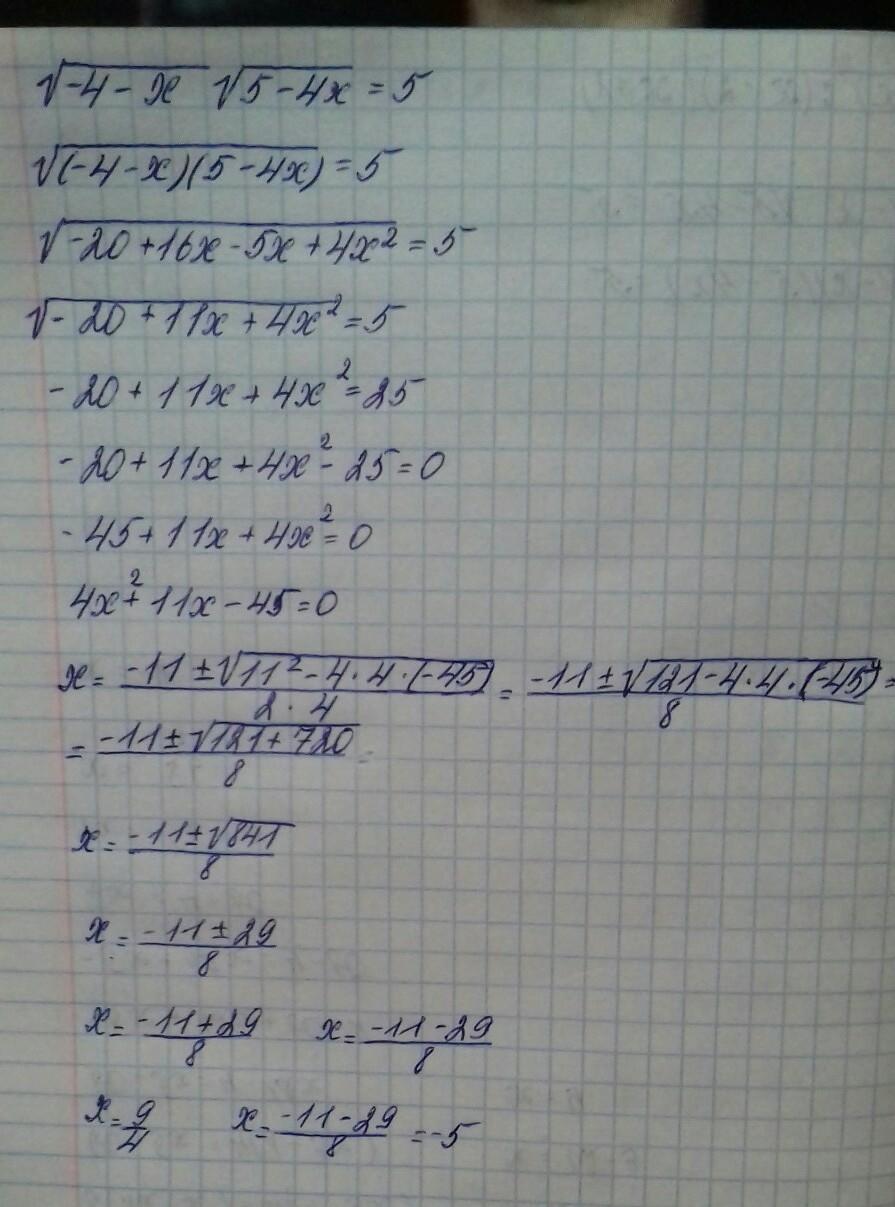 √-4-x √5-4x = 5
√(-4-x)(5-4x) = 5
√-20+16x-5x+4x² = 5
√-20+11x+4x² = 5
-20+11x+4x²=25
-20+11x+4x²-25=0
-45+11x+4x²=0
4x²+11x-45=0
x = (-11±√11²-4·4·(-45))/(2·4) = (-11±√121-4·4·(-45))/8 =
= (-11±√121+720)/8
x = (-11±√841)/8
x = (-11±29)/8
x = (-11+29)/8 x = (-11-29)/8
x = 9/4 x = (-11-29)/8 = -5